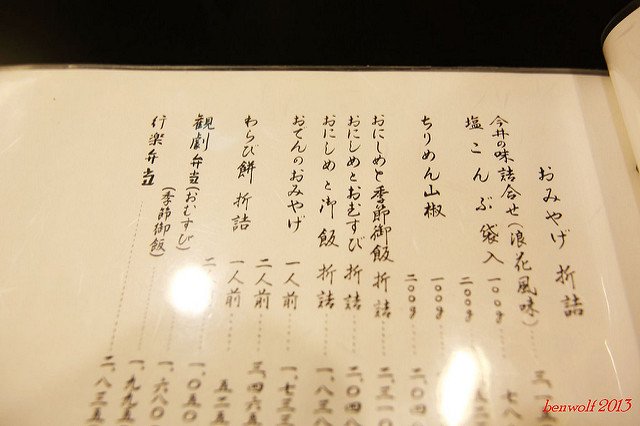 おみやげ 折詰
今井の味詰合せ(浪花風味)…… 三、一
塩こんぶ 袋入 一〇〇g …… 七八
二〇〇g ……
ちりめん山椒 一〇〇g ……
二〇〇g …… 二、〇四
おにしめと季節御飯 折詰 …… 二、三一〇
おにしめとおむすび 折詰 …… 二、〇四
おにしめと御飯 折詰 …… 一、八三
おでんのおみやげ 一人前 …… 一、七三
二人前 …… 三、四六五
わらび餅 折詰 一人前 …… 五二五
二 …… 一、〇五〇
観劇弁当(おむすび) …… 一、六八〇
(季節御飯) …… 一、九九五
行楽弁当 …… 二、八三五
benwolf 2013